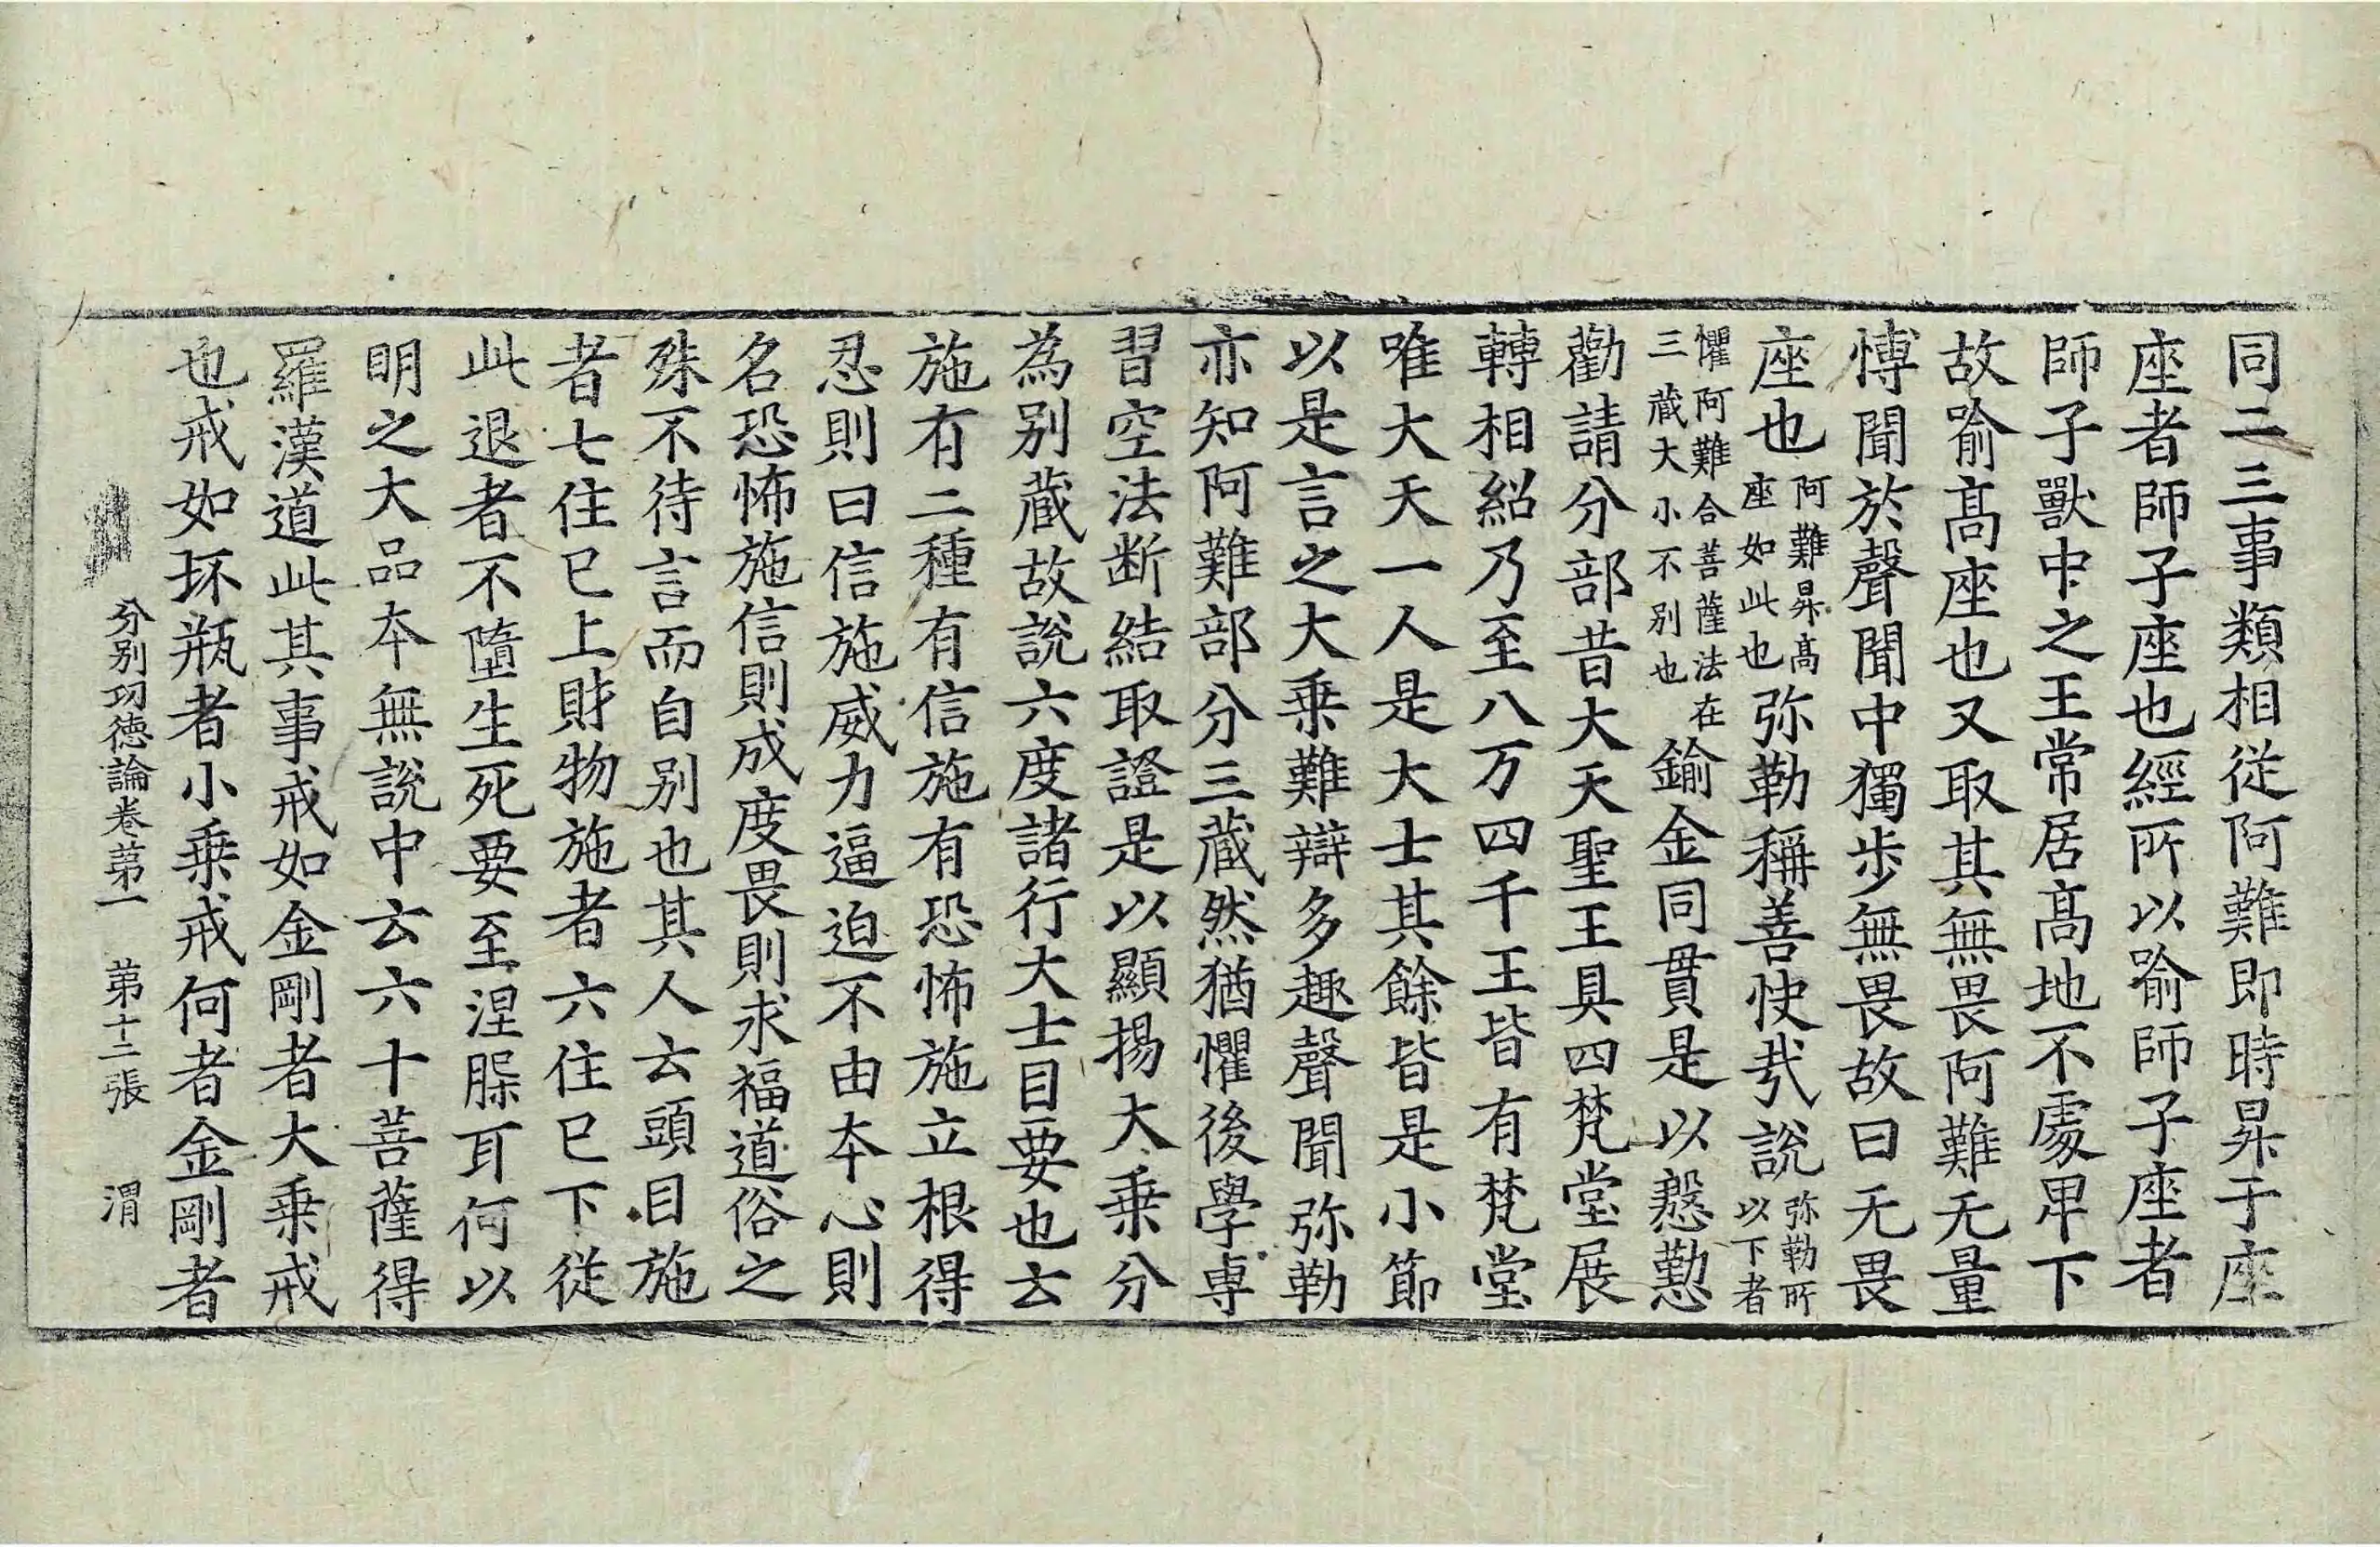 同二三事類相從阿難即時昇于座
座者師子座也經所以喻師子座者
師子獸中之王常居髙地不處卑下
故喻髙座也又取其無畏阿難无量
愽聞於聲聞中獨步無畏故曰无畏
座也阿難昇髙座如此也弥勒稱善快㢤說弥勒所以下者
懼阿難合菩薩法在三藏大小不別也鍮金同貫是以慇懃
勸請分部昔大天聖王具四梵堂展
轉相紹乃至八万四千王皆有梵堂
唯大天一人是大士其餘皆是小節
以是言之大乗難辯多趣聲聞弥勒
亦知阿難部分三藏然猶懼後學専
習空法断結取證是以顯揚大乗分
為别蔵故說六度諸行大士目要也云
施有二種有信施有恐怖施立根得
忍則曰信施威力逼迫不由本心則
名恐怖施信則成度畏則求福道俗之
殊不待言而自别也其人云頭目施
者七住已上財物施者六住已下從
此退者不墮生死要至涅槃耳何以
明之大品本無說中云六十菩薩得
羅漢道此其事戒如金剛者大乗戒
也戒如坏瓶者小乗戒何者金剛者
分别功徳論卷苐一　苐十二張　渭